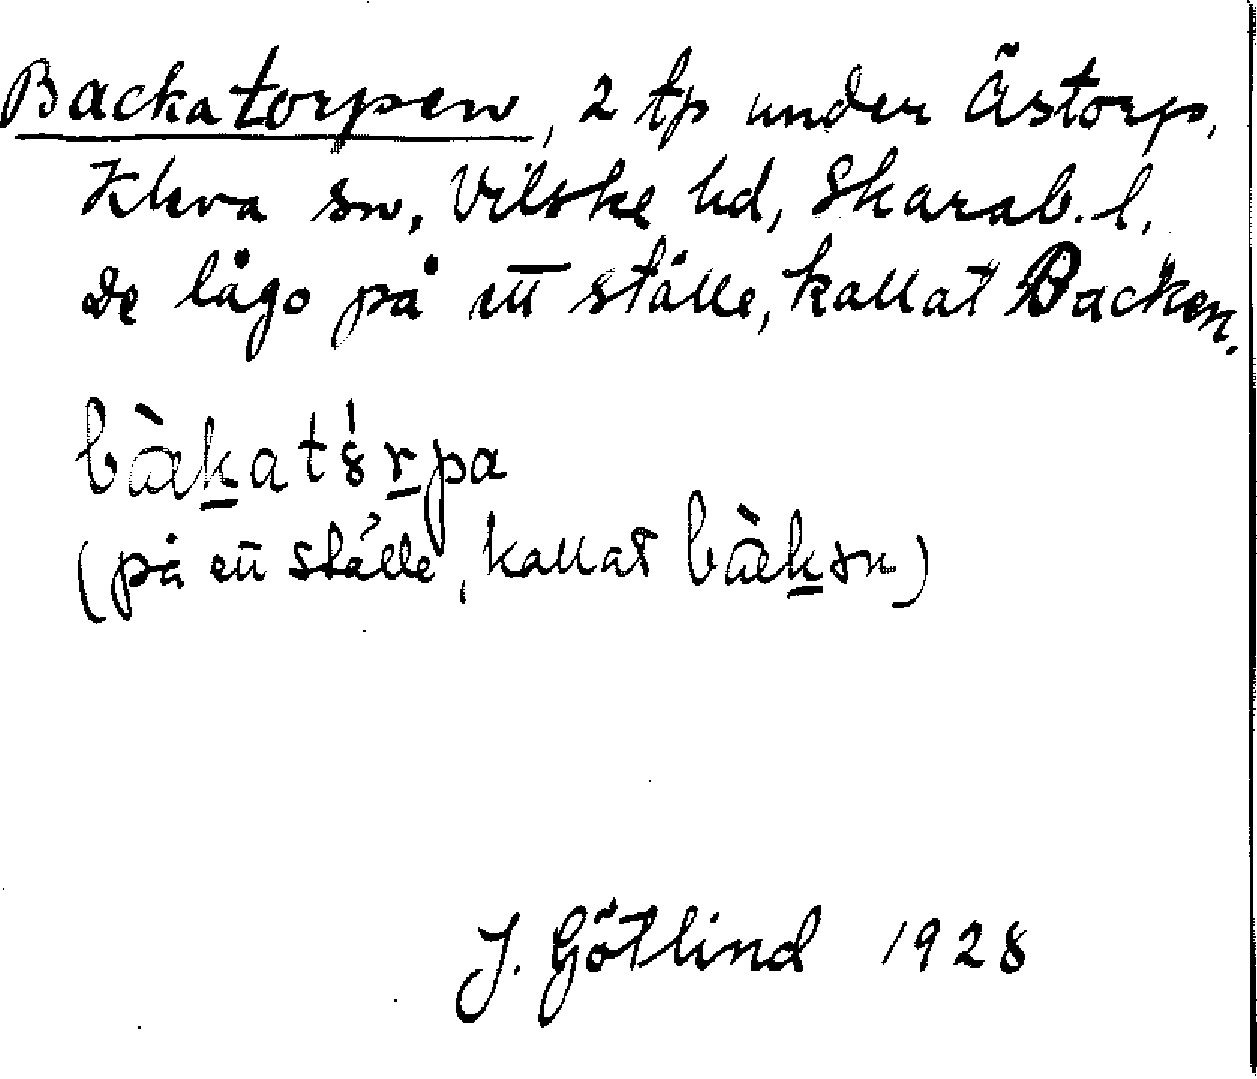 Backatorpen, 2 tp under Ästorp,
Kleva sn, Vilske hd, Skarab. l.
De lågo på ett ställe, kallat Backen.
bàkatȣ́rpa
(på ett ställe, kallat bàkən)
J. Götlind 1928